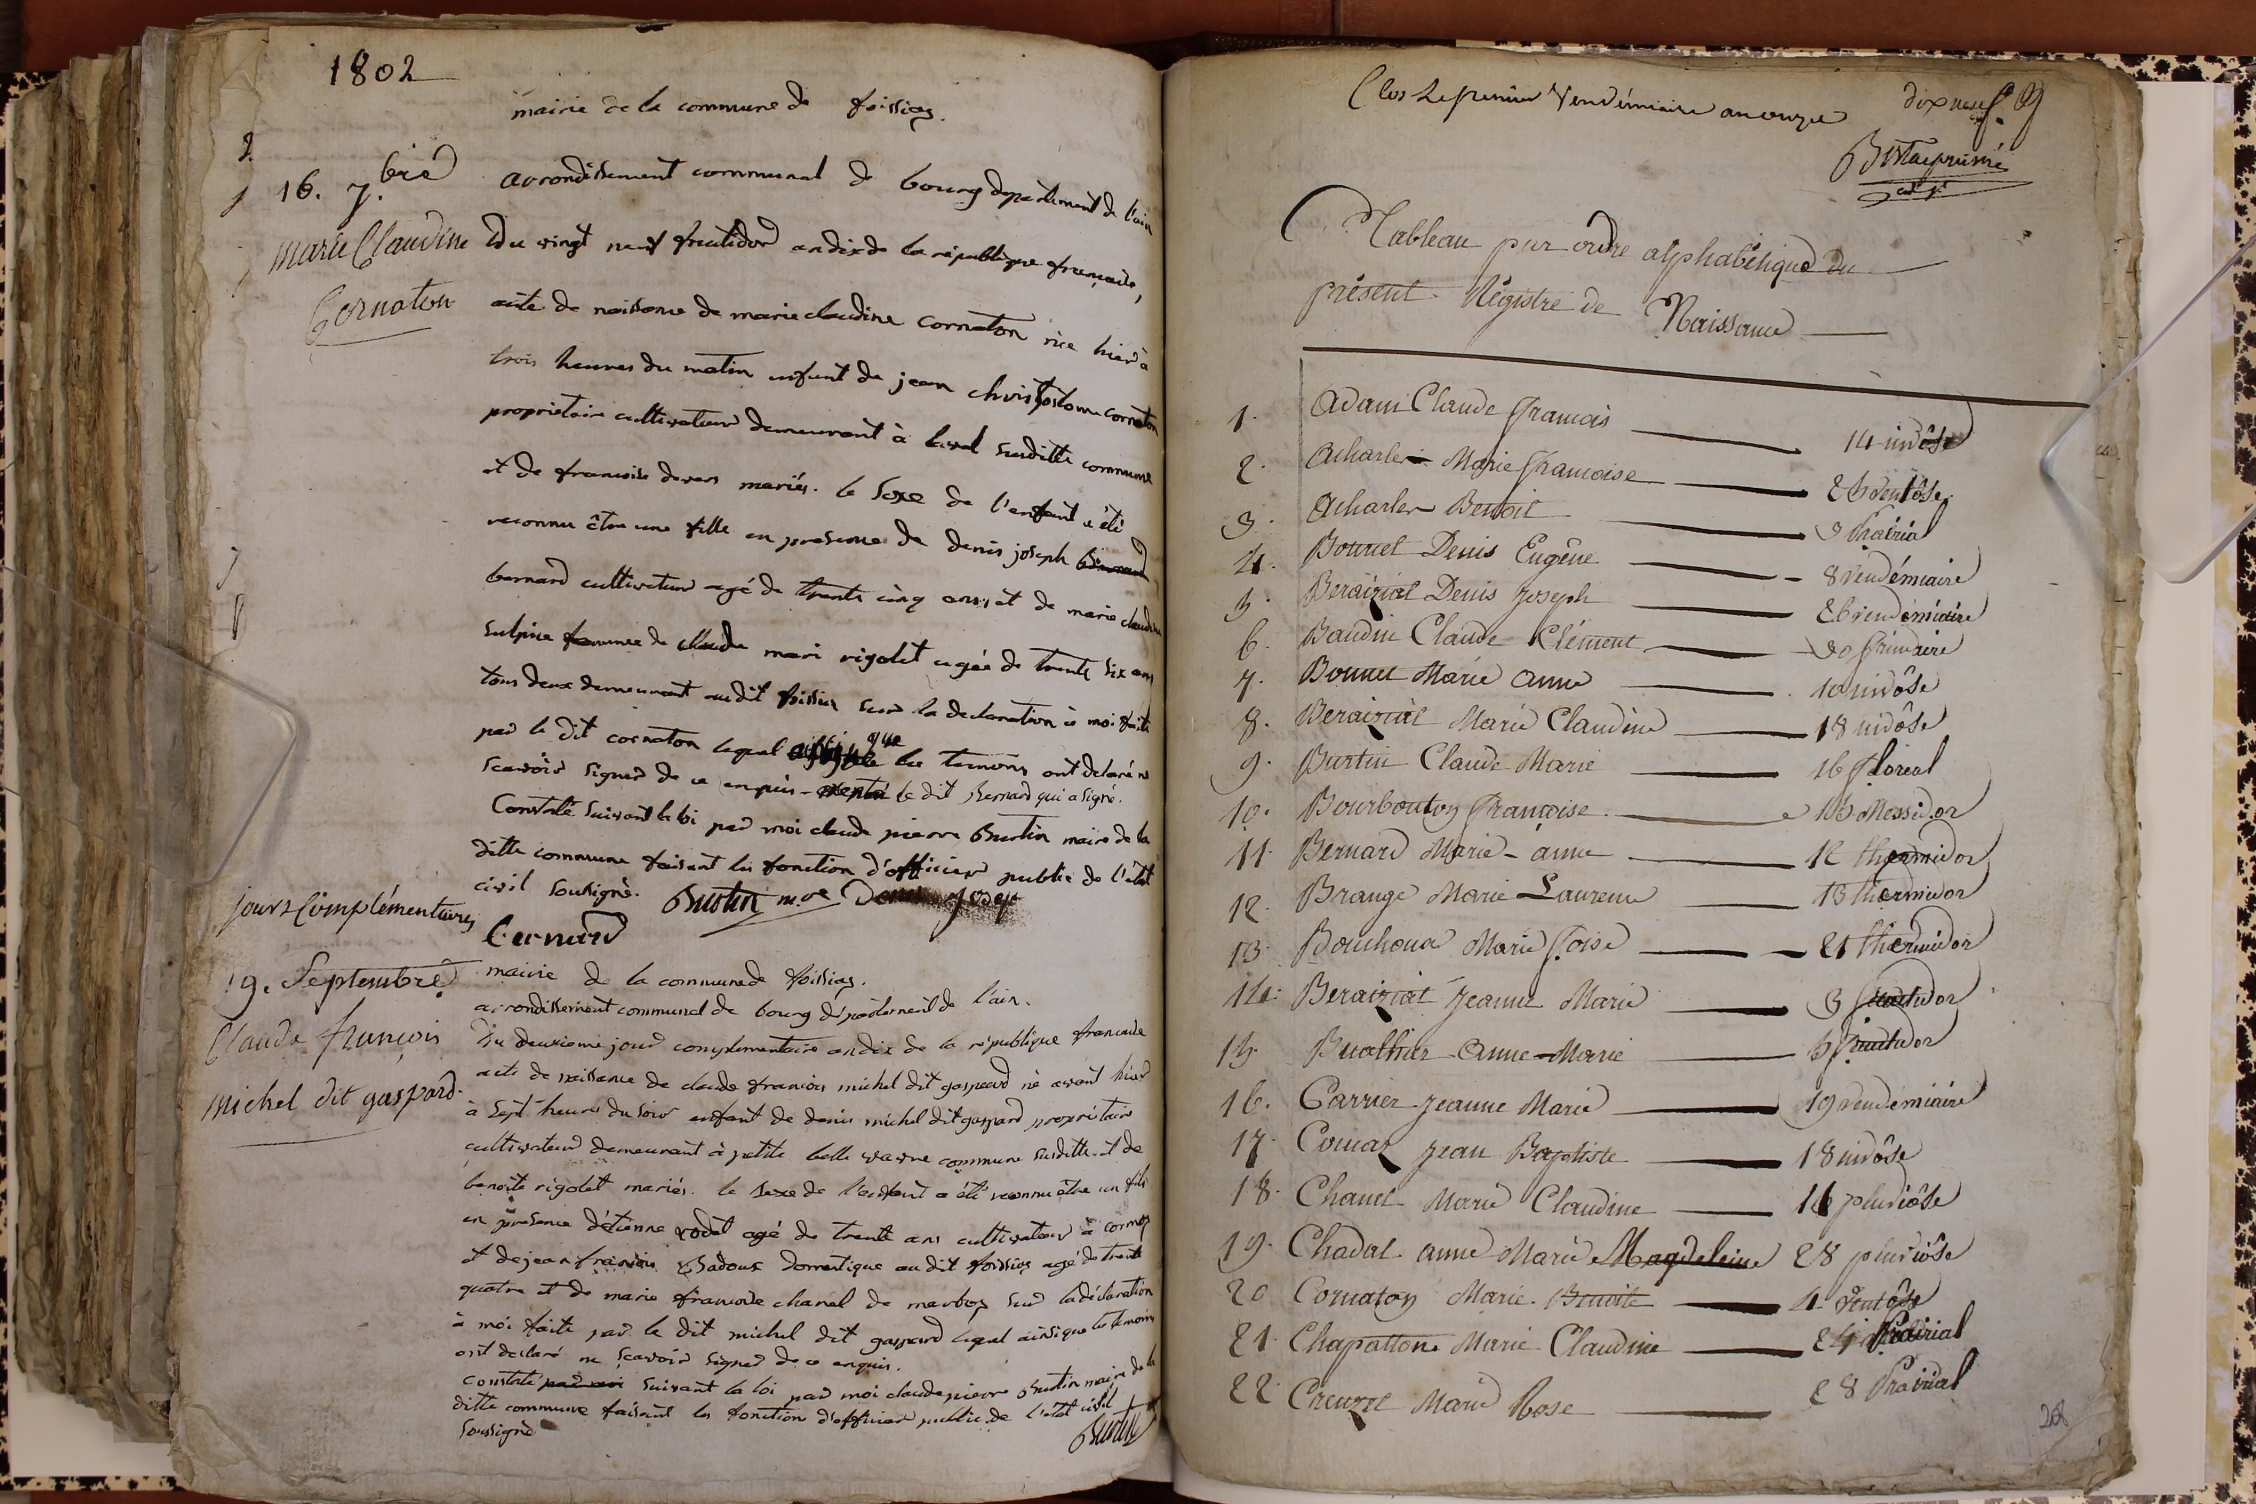 1802
mairie de la commune de foissiat.
16. 7.bre
arrondissement communal de bourg département de l'ain
Marie Claudine
Cornaton
du vingt neuf fructidor an dix de la république française,
acte de naissance de marie claudine cornaton née hier à
trois heures du matin enfant de jean cornaton
propriétaire cultivateur demeurant à laval susditte commune
et de francoise devers mariés. le sexe de l'enfant a été
reconnu être une fille en presence de denis joseph
bernard cultivateur agé de trente cinq ans et de marie claudine
sulpice femme de claude mari rigolet agée de trente six ans
tous deux demeurant audit foissia sur la declaration à moi faite
par le dit cornaton lequel que les temoins ont declaré ne
scavoir signer de ce enquis le dit Bernard qui a signé.
Constaté suivant la loi par moi claude pierre Burtin maire de la
ditte commune faisant les fonction d'officier public de l'état
civil sousigné. Burtin m.re Denis Josep
bernard
jours Complémentaires
19. Septembre
Claude françois
Michel dit gaspard.
mairie de la commune de foissiat.
arrondissement communal de bourg département de l'ain.
Du deuxieme jour complementaire an dix de la république francaise
acte de naissance de claude francois michel dit gaspard né avant hier
à sept heures du soir enfant de denis michel dit gaspard propriétaire
cultivateur demeurant à petite belle vavre commune susditte et de
benoite rigolet mariés. le sexe de l'enfant a été reconnu être un fils
en presence d'étienne rodet agé de trente ans cultivateur à cormoz
et de jean francois domestique au dit foissiat agé de trente
quatre et de marie francoise chanel de marboz sur la déclaration
à moi faite par le dit michel dit gaspard lequel ainsi que les temoins
ont declaré ne scavoir signer de ce enquis.
constaté par moi suivant la loi par moi claude pierre Burtin maire de la
ditte commune faisant les fonction d'officier public de l'état civil
soussigné Burtin
Clos Le premier Vendémiaire an onze
dix neuf.
Tableau par ordre alphabétique du
présent Régistre de Naissance
1. Adam Claude francois 14 nivôse
2. Acharler Marie francoise 26 ventôse
3. Acharler Benoit 3 Prairial
4. Bonnet Denis Eugêne 8 vendémiaire
5. Beraiziat Denis Joseph 26 vendémiaire
6. Baudin Claude Clément 30 frimaire
7. Bonnet Marie Anne 10 nivôse
8. Beraiziat Marie Claudine 18 nivôse
9. Burtin Claude Marie 16 floréal
10. Bourbouton Francoise 15 Messidor
11. Bernard Marie-anne 12 thermidor
12. Brange Marie Laurence 13 thermidor
13. Bouchoux Marie f.oise 21 thermidor
14. Beraiziat Jeanne Marie 3 fructidor
15. Buathier Anne-Marie 5 fructidor
16. Carrier Jeanne Marie 19 vendémiaire
17. Comas Jean Baptiste 18 nivôse
18. Chanel Marie Claudine 16 pluviôse
19. Chadal anne Marie Magdeleine 28 pluviôse
20 Cornaton Marie. Benoite 4 ventôse
21. Chapatton Marie Claudine 24 Prairial
22. Creuzet Marie Rose 28 Prairial
208